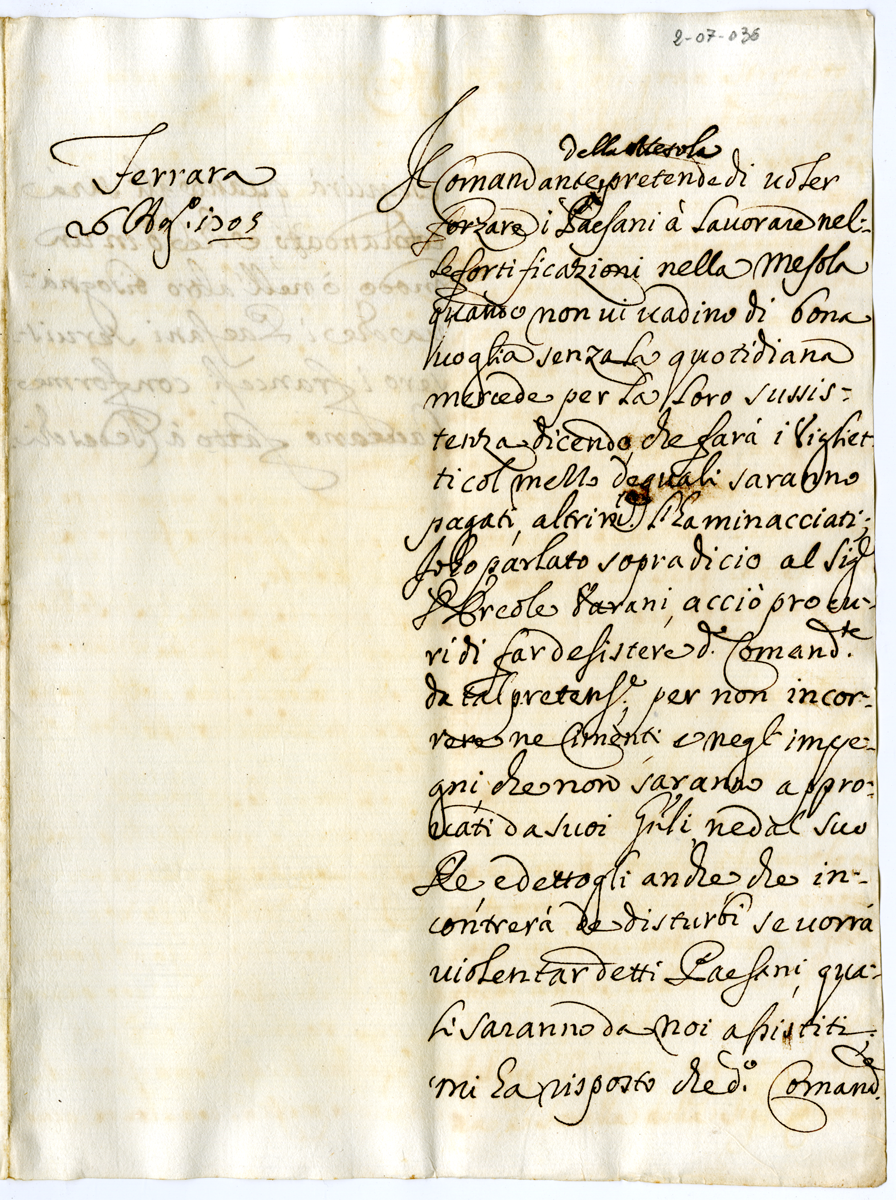 2-07-036
Ferrara
26 Ago. 1705
della Mesola
Il Comandante pretende di voler
forzare i Paesani à lavorare nel-
le fortificazioni nella Mesola
quando non vi vadino di bona
voglia senza la quotidiana
mercede per la loro sussis-
tenza dicendo che farà i Vigliet
ti col mezzo de quali saranno
pagati, altrim.i li ha minacciati;
Io ho parlato sopra di cio al Sig.r
Ercole Varani, acciò procu-
ri di far desistere d.o Comand.te
da tal pretens.e per non incor-
rere ne Cimenti e negl'impe-
gni che non saranno appro-
vati da suoi Gnãli, ne dal suo
Re e dettogli anche che in-
contrerà de disturbi se vorrà
violentar detti Paesani, qua-
li saranno da noi assistiti;
mi ha risposto che d.o Comand.te